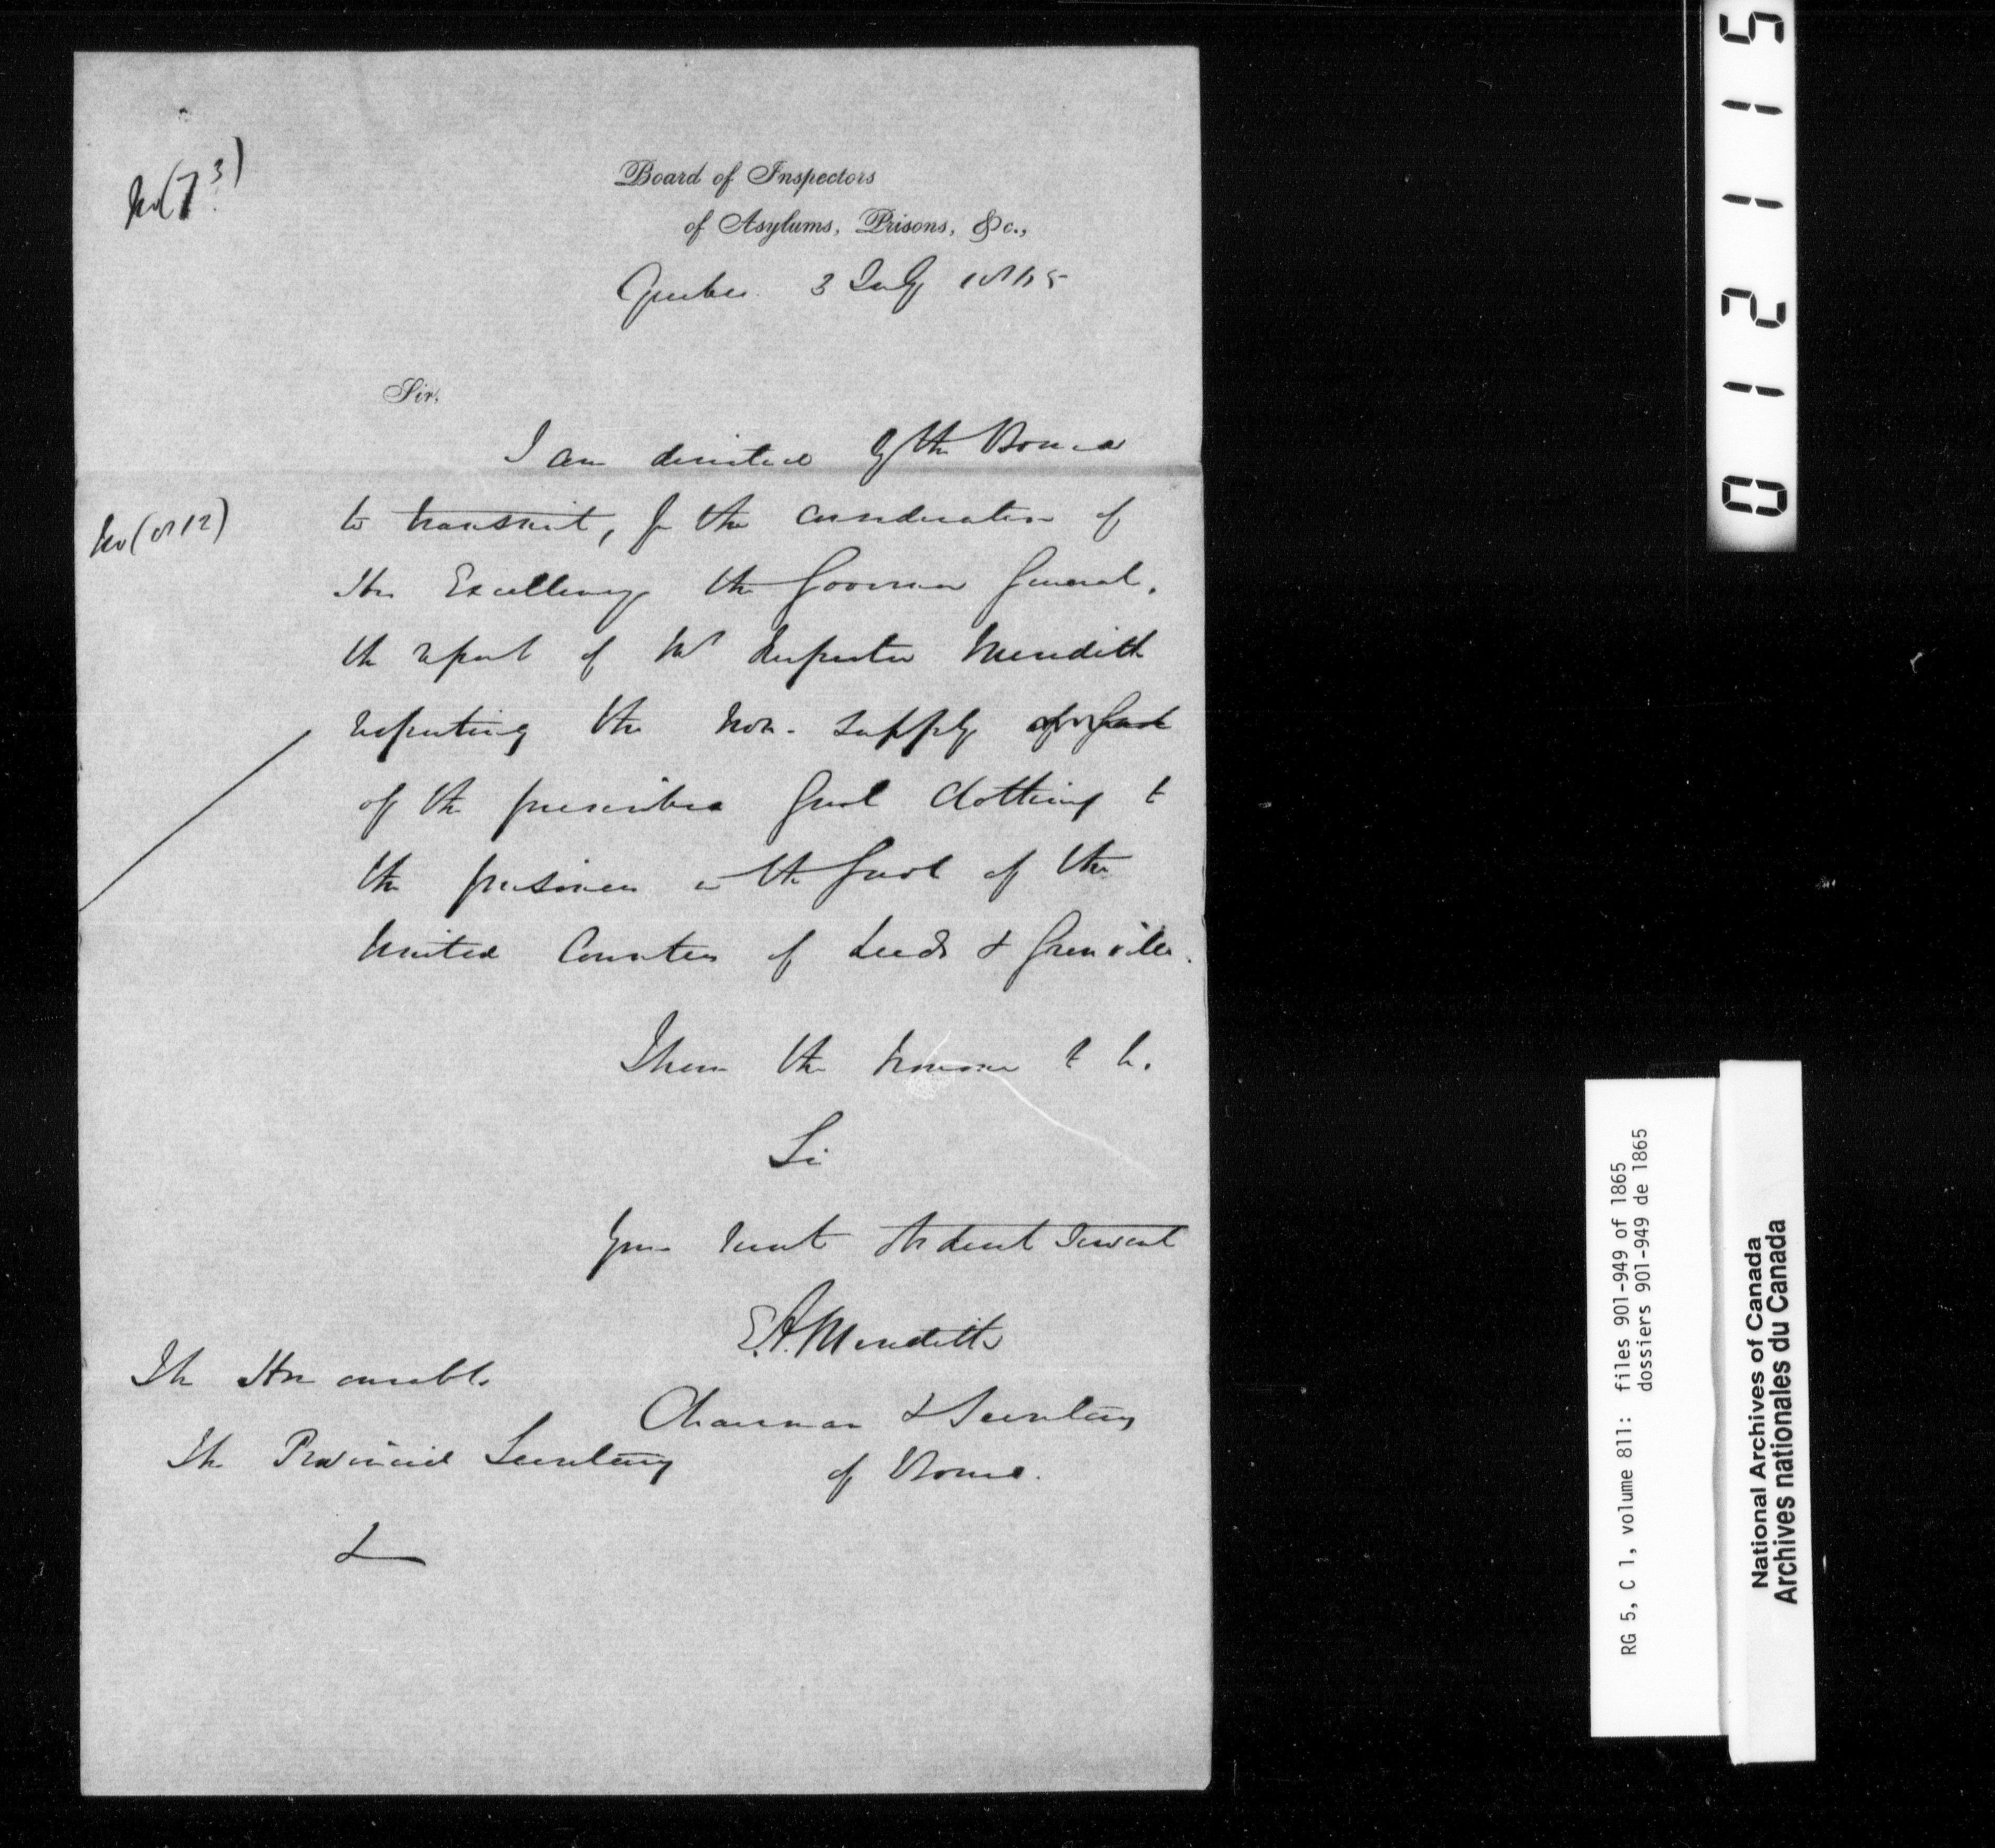 No (73)
Board of Inspectors
of Asylums, Prisons, &c.,
Quebec 3 July 1865
Sir,
I am directed by the Board
No (812)
to transmit, for the consideration of
His Excellency the Governor General,
the report of Mr Inspector Meredith
respecting the non-supply
of the prescribed Gaol Clothing to
the prisoners in the Gaol of the
United Counties of Leeds & Grenville.
I have the honour to be.
Sir
Your most obedient Servant
E.A. Meredith
Chairman & Secretary
of Board.
The Honourable
The Provincial Secretary
&
011215
RG 5, C 1, volume 811: files 901-949 of 1865
dossiers 901-949 de 1865
National Archives of Canada
Archives nationales du Canada